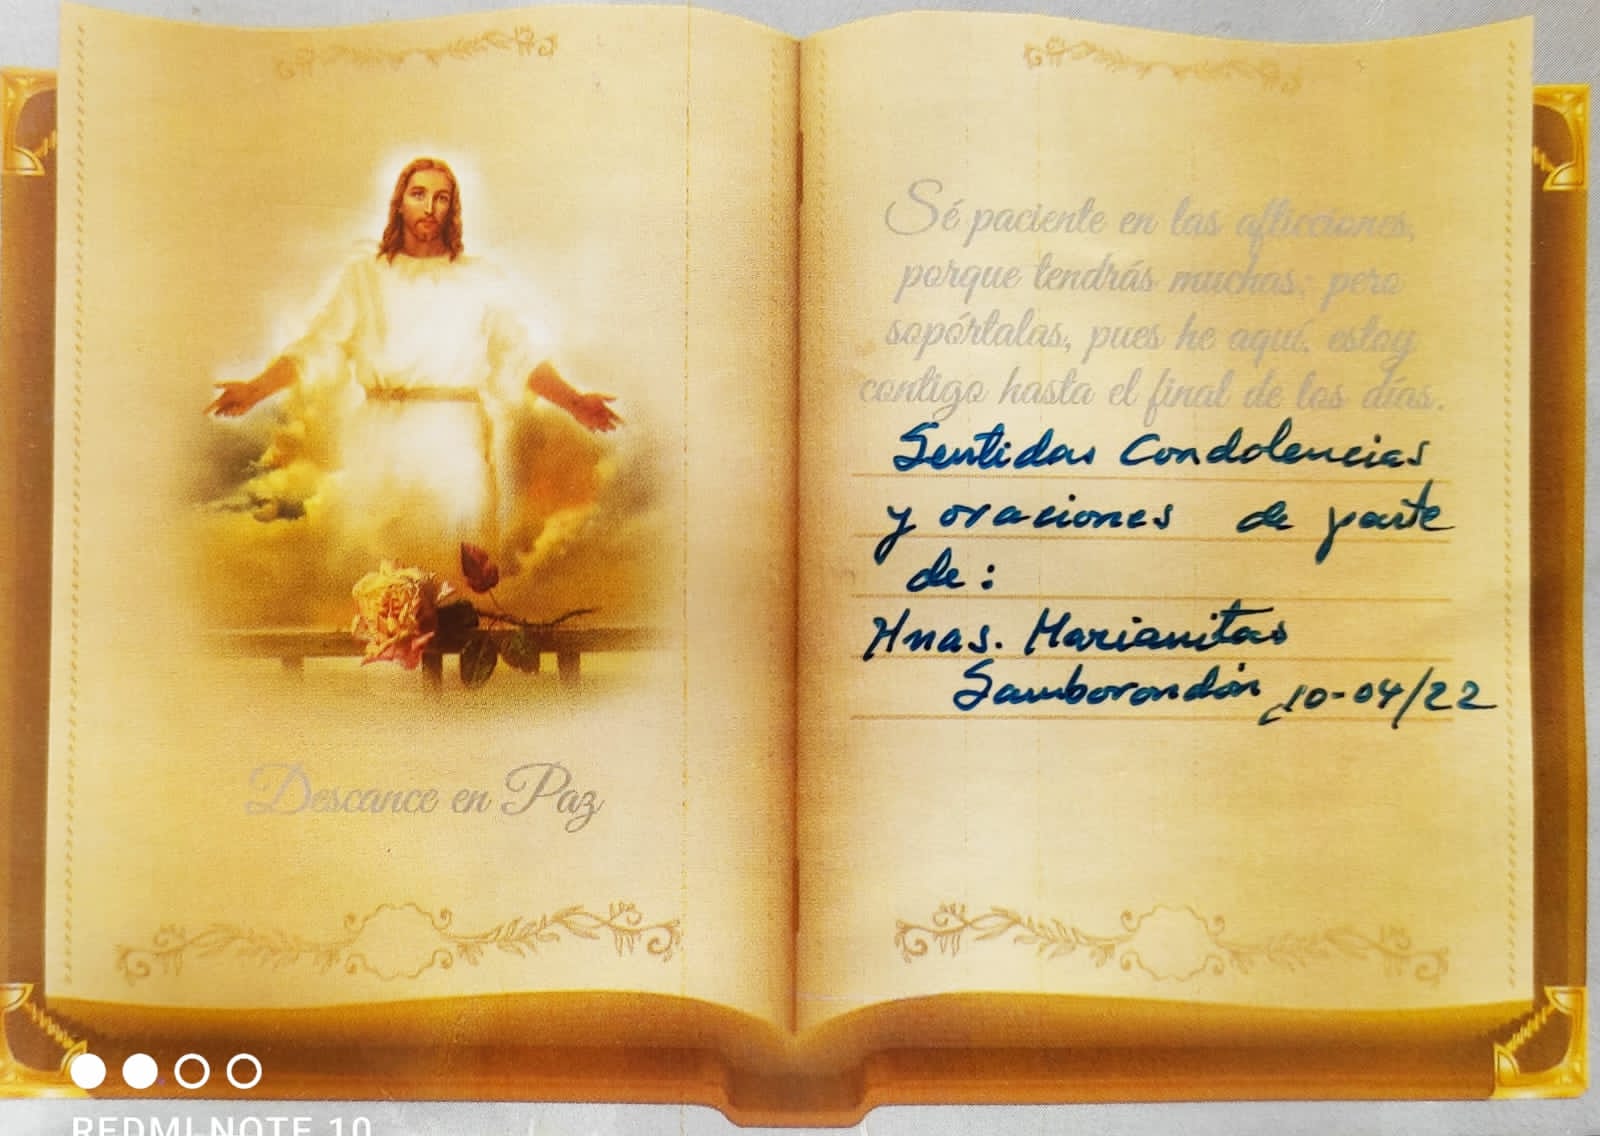 Descance en Paz
Sé paciente en las aflicciones,
porque tendrás muchas; pero
sopórtalas, pues he aquí, estoy
contigo hasta el final de los días.
Sentidas Condolencias
y oraciones de parte
de:
Hnas. Marianitas
Samborondón 10-04/22
REDMI NOTE 10